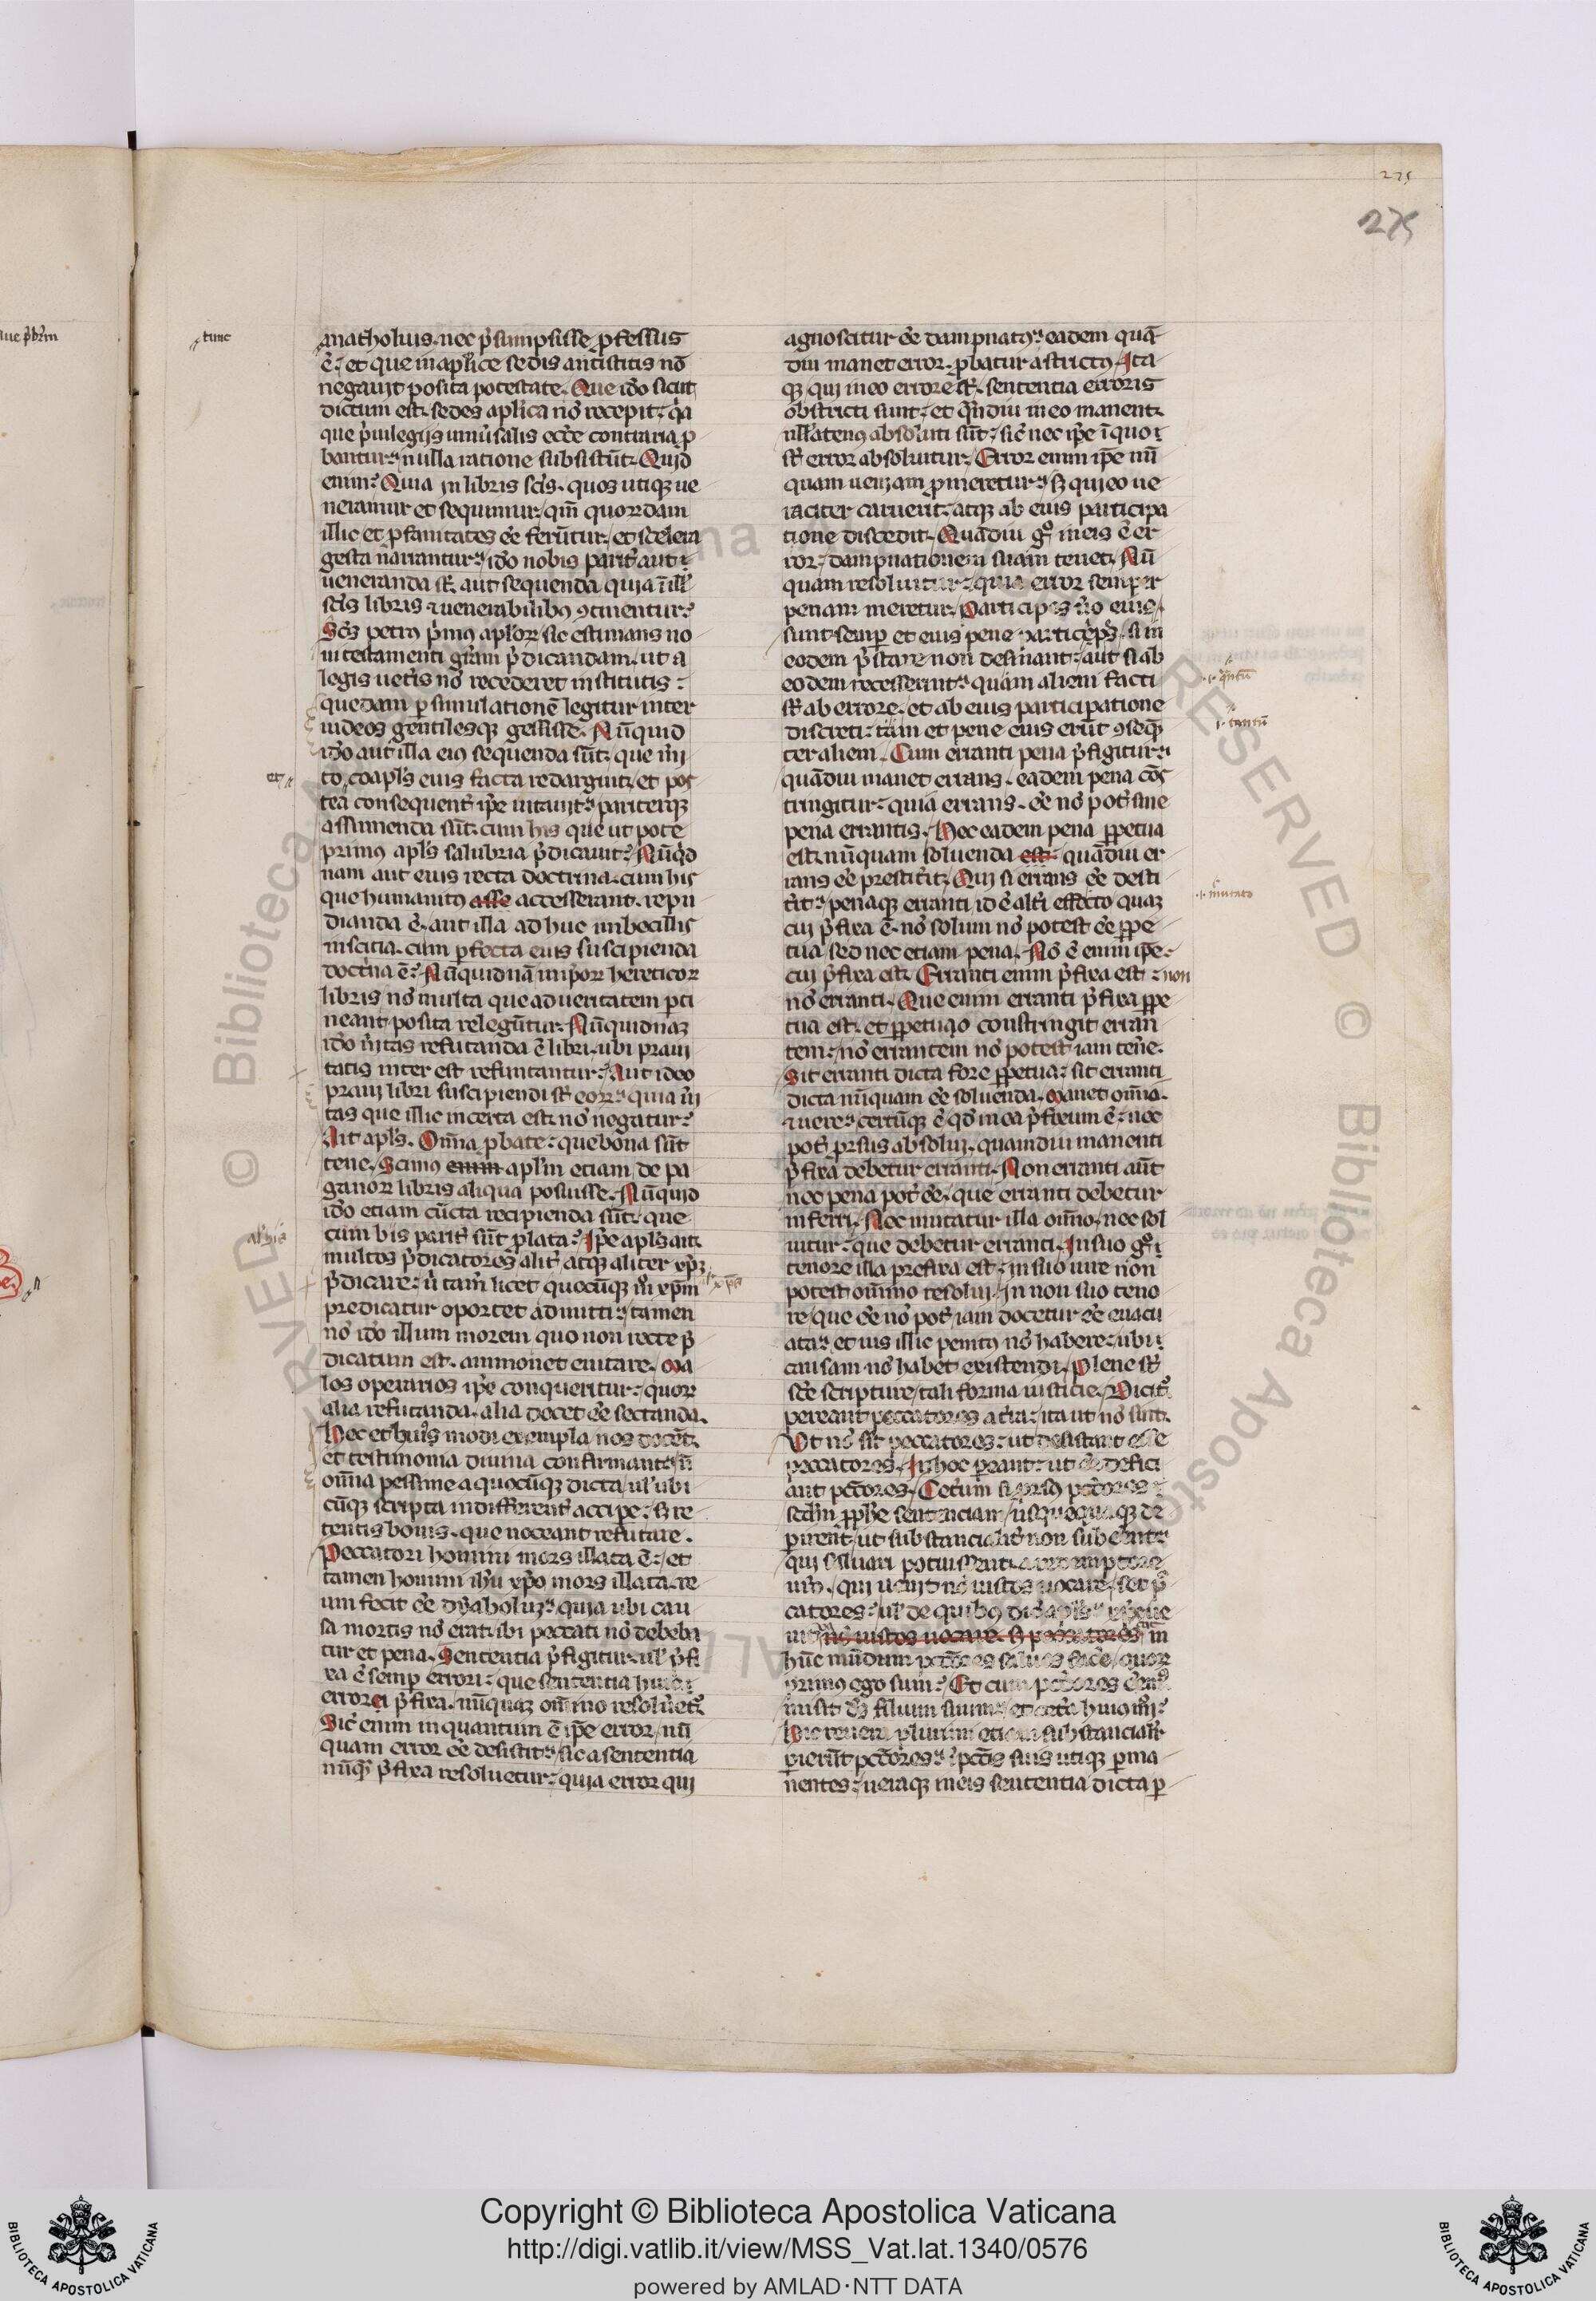 275
275
tunc
anatholius. nec p̄sumpsisse ꝓfessus
ē. et que in aplice sedis antistitis nō
negauit posita potestate. Que ido sicut
dictum est. sedes aplica nō recepit. qͥa
que pͥuilegijs uniu͛salis eccͤe contraria ꝓ
bantur. nulla ratione subsistūt. Quid
enim? Quia in libris scīs. quos utiqꝫ ue
neramur et sequimur. qm̄ quorꝝdam
illic et ꝓfanitates eē ferūtur. et scelera
gesta narrantur. ido nobis parit͛ aut
ueneranda sʳ. aut sequenda quia ī ill̄
scīs libris ⁊ uenerabilibꝰ ꝯtinentur?
Scs̄ petrꝰ pͥmꝰ aplorꝝ sic estimans no
ui testamenti gr̄am p̄dicandam. ut a
legis uet͛is nō recederet institutis.
quedam ꝑ simulationē legitur inter
iudeos gentilesqꝫ gessisse. Nūquid
ido aut illa eiꝰ sequenda sūt. que m͛i
et
to coapls̄ eius facta redarguit. et pos
tea consequent͛ ipē uitauit. pariterqꝫ
assumenda sūt. cum his que ut pote
primꝰ apls̄ salubria p̄dicauit? Nūqͥd
nam aut eius recta doctrina. cum his
que humanitꝰ asse accesserant. repu
dianda ē. aut illa adhuc imbecillis
inscitia. cum ꝑfecta eius suscipienda
doctͥna ē? Nūquidnā imp̄orꝝ hereticorꝝ
libris nō multa que ad ueritatem ꝑti
neant posita relegūtur. Nūquidnaꝫ
ido u͛itas refutanda ē libri. ubi praui
tatis inter est refutantur? Aut ideo
praui libri suscipiendi sʳ eorꝝ. quia u͛i
tas que illic incerta est. nō negatur?
Ait apls̄. Om̄ia ꝓbate. que bona sūt
tene. Scimꝰ enim aplm̄ etiam de pa
ganorꝝ libris aliqua posuisse. Nūquid
ido etiam cūcta recipienda sūt. que
al' his
cum bis parit͛ sūt ꝓlata? Ipe apls̄ ait.
multos p̄dicatores alit͛ atqꝫ aliter xp̄ꝫ
p̄dicare. ⁊ tam̄ licet quocūqꝫ mͦ xp̄m
predicatur oportet admitti. tamen
nō ido illum morem quo non recte p̄
dicatum est. ammonet euitare. Ma
los operarios ipe conqueritur. quorꝝ
alia refutanda. alia docet eē sectanda.
Hec et huiꝰ modi exempla nos docēt.
et testimonia diuina confirmant. n̄
om̄ia pessime a quocūqꝫ dicta. ul' ubi
cūqꝫ scripta indifferent͛ accipe. sꝫ re
tentis bonis. que noceant refutare.
Peccatori homini mors illata ē. et
tamen homini ihū xp̄o mors illata. re
um fecit eē dyaboluꝫ. quia ubi cau
sa mortis nō erat. ibi peccati nō debeba
tur et pena. Sententia p̄figitur. ul' p̄fi
xa ē semꝑ errori. que sententia huic
errori p̄fixa. nūquaꝫ om̄ino resolu͛et͛.
Sic̄ enim inquantum ē ipe error. nū
quam error eē desistit. sic a sententia
nūqꝫ p̄fixa resoluetur. quia error qui
agnoscitur eē dampnatꝰ. eadem quā
diu manet error. ꝓbatur astrictꝰ. Ita
qꝫ qui in eo errore sʳ. sententia erroris
obstricti sunt. et qn̄diu in eo manent.
null̄atenꝰ absoluti sūt. sic̄ nec ipe ī quo
sʳ error absoluitur. Error enim ipe nū
quam ueniam ꝓmeretur. sꝫ qui eo ue
raciter caruerit. atqꝫ ab eius participa
tione discedit. Quādiu gͦ in eis ē er
ror. dampnationem suam tenet. Nū
quam resoluitur. quia error semper
penam meretur. Participes u͛o eius
sunt semꝑ et eius pene particeps. si in
eodem p̄stare non desinant. aut si ab
qͣntū
eodem recesserint. quam alieni facti
sʳ ab errore. et ab eius participatione
tantū
discreti. tam et pene eius erūt ꝯseqn̄
ter alieni. Cum erranti pena p̄figitur.
quādiu manet errans. eadem pena cōs
tringitur. quia errans. eē nō pot͛ sine
pena errantis. Hec eadem pena ꝑpetua
est. nūquam soluenda est. quādiu er
rans eē prestit͛it. Qui si errans eē desti
mutato
t͛it. penaqꝫ erranti id ē alt͛i effecto quaꝫ
cui p̄fixa ē. nō solum nō potest eē ꝑpe
tua. sed nec etiam pena. Nō ē enim ipe.
cui p̄fixa est. Erranti enim p̄fixa est. non
nō erranti. Que enim erranti p̄fixa ꝑpe
tua est. et ꝑpetuao constringit erran
tem. nō errantem nō potest iam ten͛e.
Sit erranti dicta fore ꝑpetua. sit erranti
dicta nūquam eē soluenda. Manet om̄ia.
⁊ uere. certūqꝫ ē qd̄ in ea p̄fixum ē. nec
pot͛ ꝓrsus absolui. quamdiu manenti
p̄fixa debetur erranti. Non erranti aūt
nec pena pot͛ eē. que erranti debetur
inferri. Nec mutatur illa om̄io. nec sol
uitur. que debetur erranti. In suo gͦ
tenore illa prefixa est. in suo iure non
potest omnino resolui. In non suo teno
re que eē nō pot͛ iam docetur eē euacu
ata. et ius illic penitꝰ nō habere. ubi
causam nō habet existendi. Plene sʳ
scē scripture tali forma iusticie. Dicit͛.
pereant peccatores a t͛ra. ita ut nō sint.
Ut nō sīt peccatores. ut desistant esse
peccatores. In hoc ꝑeant. ut eē defici
ant pctōres. Cet͛um si prsus pctōres
sec̄m ꝓphē sentenciam usquequaqꝫ de
ꝑirent. ut substancialit͛ non subeēnt.
qui saluari potuissent. a redemptore
qui uenit nō iustos uocare. set p̄
catores. ul' de quibꝰ dic̄ apls̄
nō iustos uocare. sꝫ peccatores in
hūc mūdum pctōres saluos fac͛e. quorꝝ
primꝰ ego sum? Et cum pctōres
misit ds̄ filium suum. et cet͛a huiꝰmͦi?
Hic reuera plurimi etiam substancialit͛
ꝑierūt pctōres. ī pctīs suis utiqꝫ ꝑma
nentes. ueraqꝫ in eis sententia dicta ꝑ
Copyright © Biblioteca Apostolica Vaticana
http://digi.vatlib.it/view/MSS_Vat.lat.1340/0576
powered by AMLAD·NTT DATA